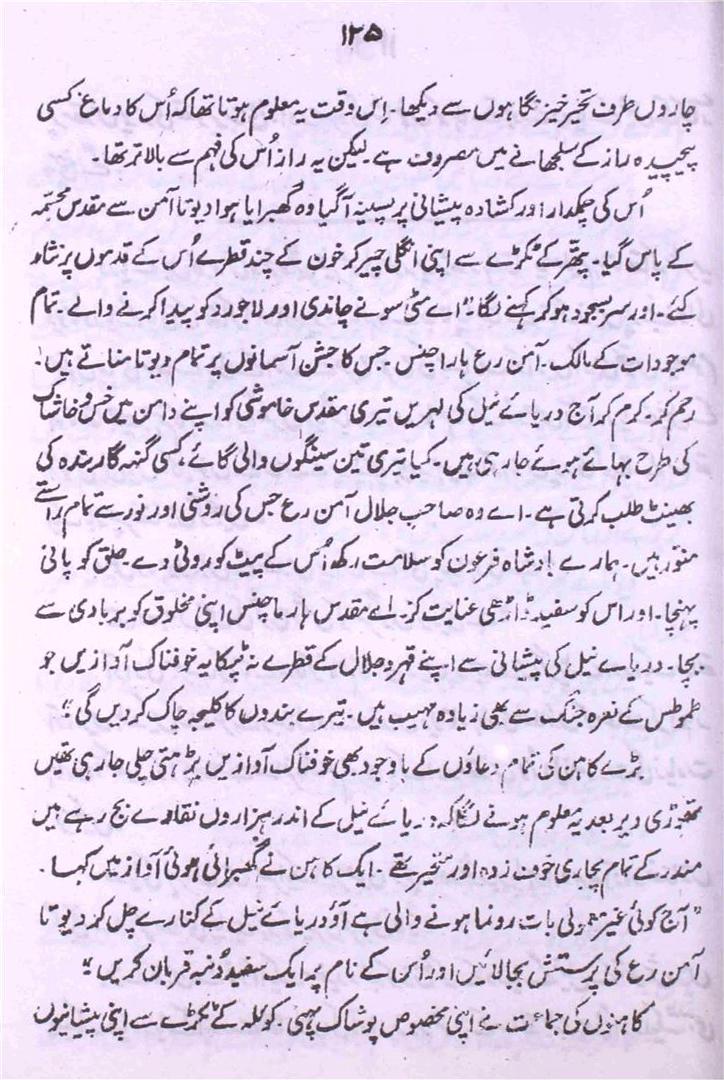 ۱۲۵
چاروں طرف تحیر خیز نگاہوں سے دیکھا۔ اِس وقت یہ معلوم ہوتا تھا کہ اُس کا دماغ کسی
پیچیدہ راز کے سلجھانے میں مصروف ہے۔ لیکن یہ راز اُس کی فہم سے بالاتر تھا۔
اُس کی چمکدار اور کشادہ پیشانی پر پسینہ آگیا وہ گھبرایا ہوا دیوتا آمن سے مقدس مجسمہ
کے پاس گیا۔ پتھر کے ٹکڑے سے اپنی انگلی چیر کر خون کے چند قطرے اُس کے قدموں پر نثار
کئے۔ اور سر بسجود ہو کر کہنے لگا۔ "اے مٹی سونے چاندی اور لاجورد کو پیدا کرنے والے۔ تمام
موجودات کے مالک۔ آمن رع ہارا چِنس۔ جس کا جشن آسمانوں پر تمام دیوتا مناتے ہیں۔
رحم کر۔ کرم کر آج دریائے نیل کی لہریں تیری مقدس خاموشی کو اپنے دامن میں خس و خاشاک
کی طرح بہائے ہوئے جا رہی ہیں۔ کیا تیری تین سینگوں والی گائے، کسی گنہگار بندہ کی
بھینٹ طلب کرتی ہے۔ اے وہ صاحبِ جلال آمن رع جس کی روشنی اور نور سے تمام راستے
منور ہیں۔ ہمارے بادشاہ فرعون کو سلامت رکھ اُس کے پیٹ کو روٹی دے۔ حلق کو پانی
پہنچا۔ اور اس کو سفید ڈاڑھی عنایت کر۔ اے مقدس ہارماچنس اپنی مخلوق کو بربادی سے
بچا۔ دریائے نیل کی پیشانی سے اپنے قہر و جلال کے قطرے نہ ٹپکا یہ خوفناک آوازیں جو
طموطس کے نعرہ جنگ سے بھی زیادہ مہیب ہیں۔ تیرے بندوں کا کلیجہ چاک کر دیں گی"
بڑے کاہن کی تمام دعاؤں کے باوجود بھی خوفناک آوازیں بڑھتی چلی جا رہی تھیں
تھوڑی دیر بعد یہ معلوم ہونے لگا کہ دریائے نیل کے اندر ہزاروں نقارے بج رہے ہیں
مندر کے تمام پجاری خوف زدہ اور متحیر تھے۔ ایک کاہن نے گھبرائی ہوئی آواز میں کہا۔
"آج کوئی غیر معمولی بات رونما ہونے والی ہے آؤ دریائے نیل کے کنارے چل کر دیوتا
آمن رع کی پرستش بجا لائیں اور اُس کے نام پر ایک سفید دُنبہ قربان کریں"
کاہنوں کی جماعت نے اپنی مخصوص پوشاک پہنی۔ کوئلہ کے ٹکڑے سے اپنی پیشانیوں